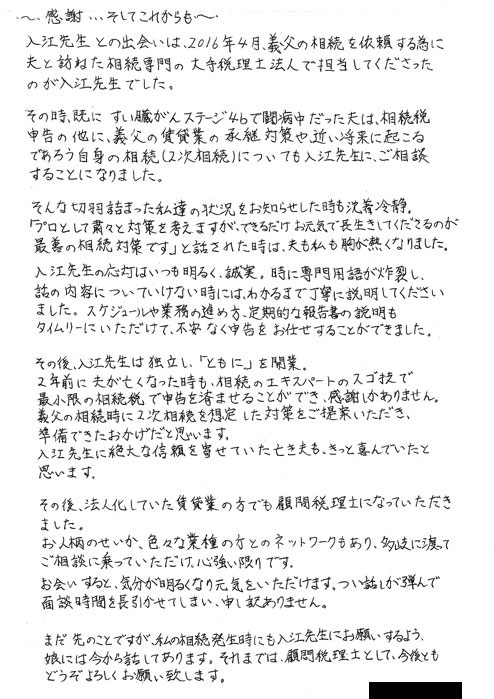 ～感謝…そしてこれからも～
入江先生との出会いは、2016年4月、義父の相続を依頼する為に
夫と訪ねた相続専門の大手税理士法人で担当してくださった
のが入江先生でした。
その時、既にすい臓がんステージ4bで闘病中だった夫は、相続税
申告の他に、義父の賃貸業の承継対策や、近い将来に起こる
であろう自身の相続(2次相続)についても入江先生に、ご相談
することになりました。
そんな切羽詰まった私達の状況をお知らせした時も沈着冷静。
「プロとして粛々と対策を考えますが、できるだけお元気で長生きしてくださるのが
最善の相続対策です」と話された時は、夫も私も胸が熱くなりました。
入江先生の応対はいつも明るく、誠実。時に専門用語が炸裂し、
話の内容についていけない時には、わかるまで丁寧に説明してください
ました。スケジュールや業務の進め方、定期的な報告書の説明も
タイムリーにいただけて、不安なく申告をお任せすることができました。
その後、入江先生は独立し、「ともに」を開業。
2年前に夫が亡くなった時も、相続のエキスパートのスゴ技で
最小限の相続税で申告を済ませることができ、感謝しかありません。
義父の相続時に2次相続を想定した対策をご提案いただき、
準備できたおかげだと思います。
入江先生に絶大な信頼を寄せていた亡き夫も、きっと喜んでいたと
思います。
その後、法人化していた賃貸業の方でも顧問税理士になっていただき
ました。
お人柄のせいか、色々な業種の方とのネットワークもあり、多岐に渡って
ご相談に乗っていただけ、心強い限りです。
お会いすると、気分が明るくなり元気をいただけます。つい話しが弾んで
面談時間を長引かせてしまい、申し訳ありません。
まだ先のことですが、私の相続発生時にも入江先生にお願いするよう、
娘には今から話してあります。それまでは、顧問税理士として、今後とも
どうぞよろしくお願い致します。